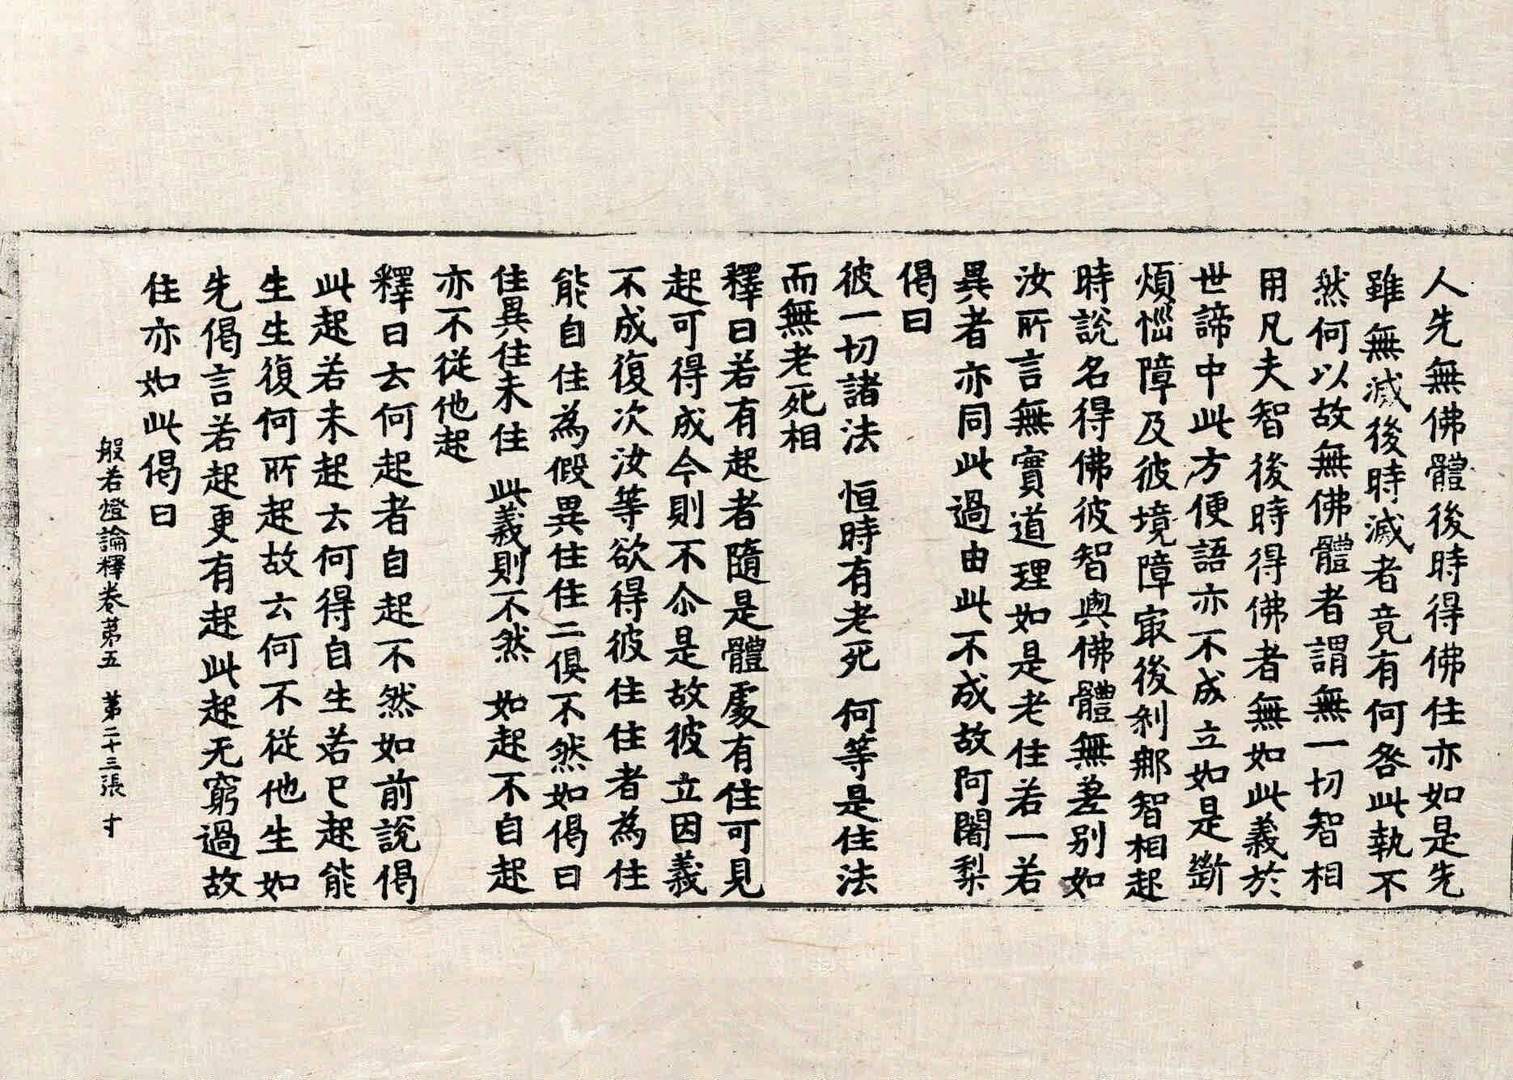 人先無佛體後時得佛住亦如是先
雖無滅後時滅者竟有何咎此執不
然何以故無佛體者謂無一切智相
用凡夫智後時得佛者無如此義於
世諦中此方便語亦不成立如是斷
煩惱障及彼境障㝡後剎𨚗智相起
時說名得佛彼智與佛體無差別如
汝所言無實道理如是老住若一若
異者亦同此過由此不成故阿闍梨
偈曰
彼一切諸法 恒時有老死 何等是住法
而無老死相
釋曰若有起者隨是體處有住可見
起可得成今則不尒是故彼立因義
不成復次汝等欲得彼住住者為住
能自住為假異住住二俱不然如偈曰
住異住未住 此義則不然 如起不自起
亦不從他起
釋曰云何起者自起不然如前說偈
此起若未起云何得自生若已起能
生生復何所起故云何不從他生如
先偈言若起更有起此起无窮過故
住亦如此偈曰
般若燈論釋卷第五 第二十三張 寸